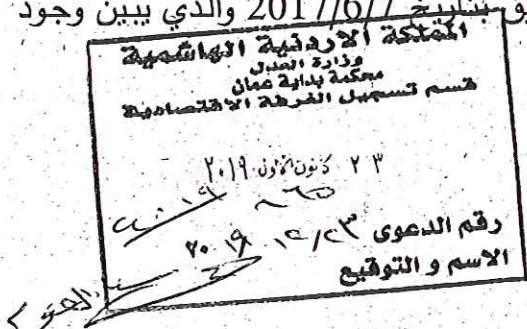 بتاريخ 2017/6/7 والذي يبين وجود
المملكة الأردنية الهاشمية
وزارة العدل
محكمة بداية عمان
قسم تسجيل الغرفة الاقتصادية
٢٣ كانون الأول ٢٠١٩
رقم الدعوى
٢٠١٩/١٢/٢٣
الاسم و التوقيع